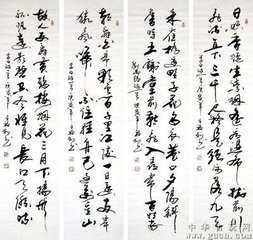 日照香炉生紫烟遥看瀑布挂前川
飞流直下三千尺疑是银河落九天
朱雀桥边野草花乌衣巷口夕阳斜
旧时王谢堂前燕飞入寻常百姓家
朝辞白帝彩云间千里江陵一日还两岸
猿声啼不住轻舟已过万重山
故人西辞黄鹤楼烟花三月下扬州
孤帆远影碧空尽唯见长江天际流
中华古玩网
www.gucn.com